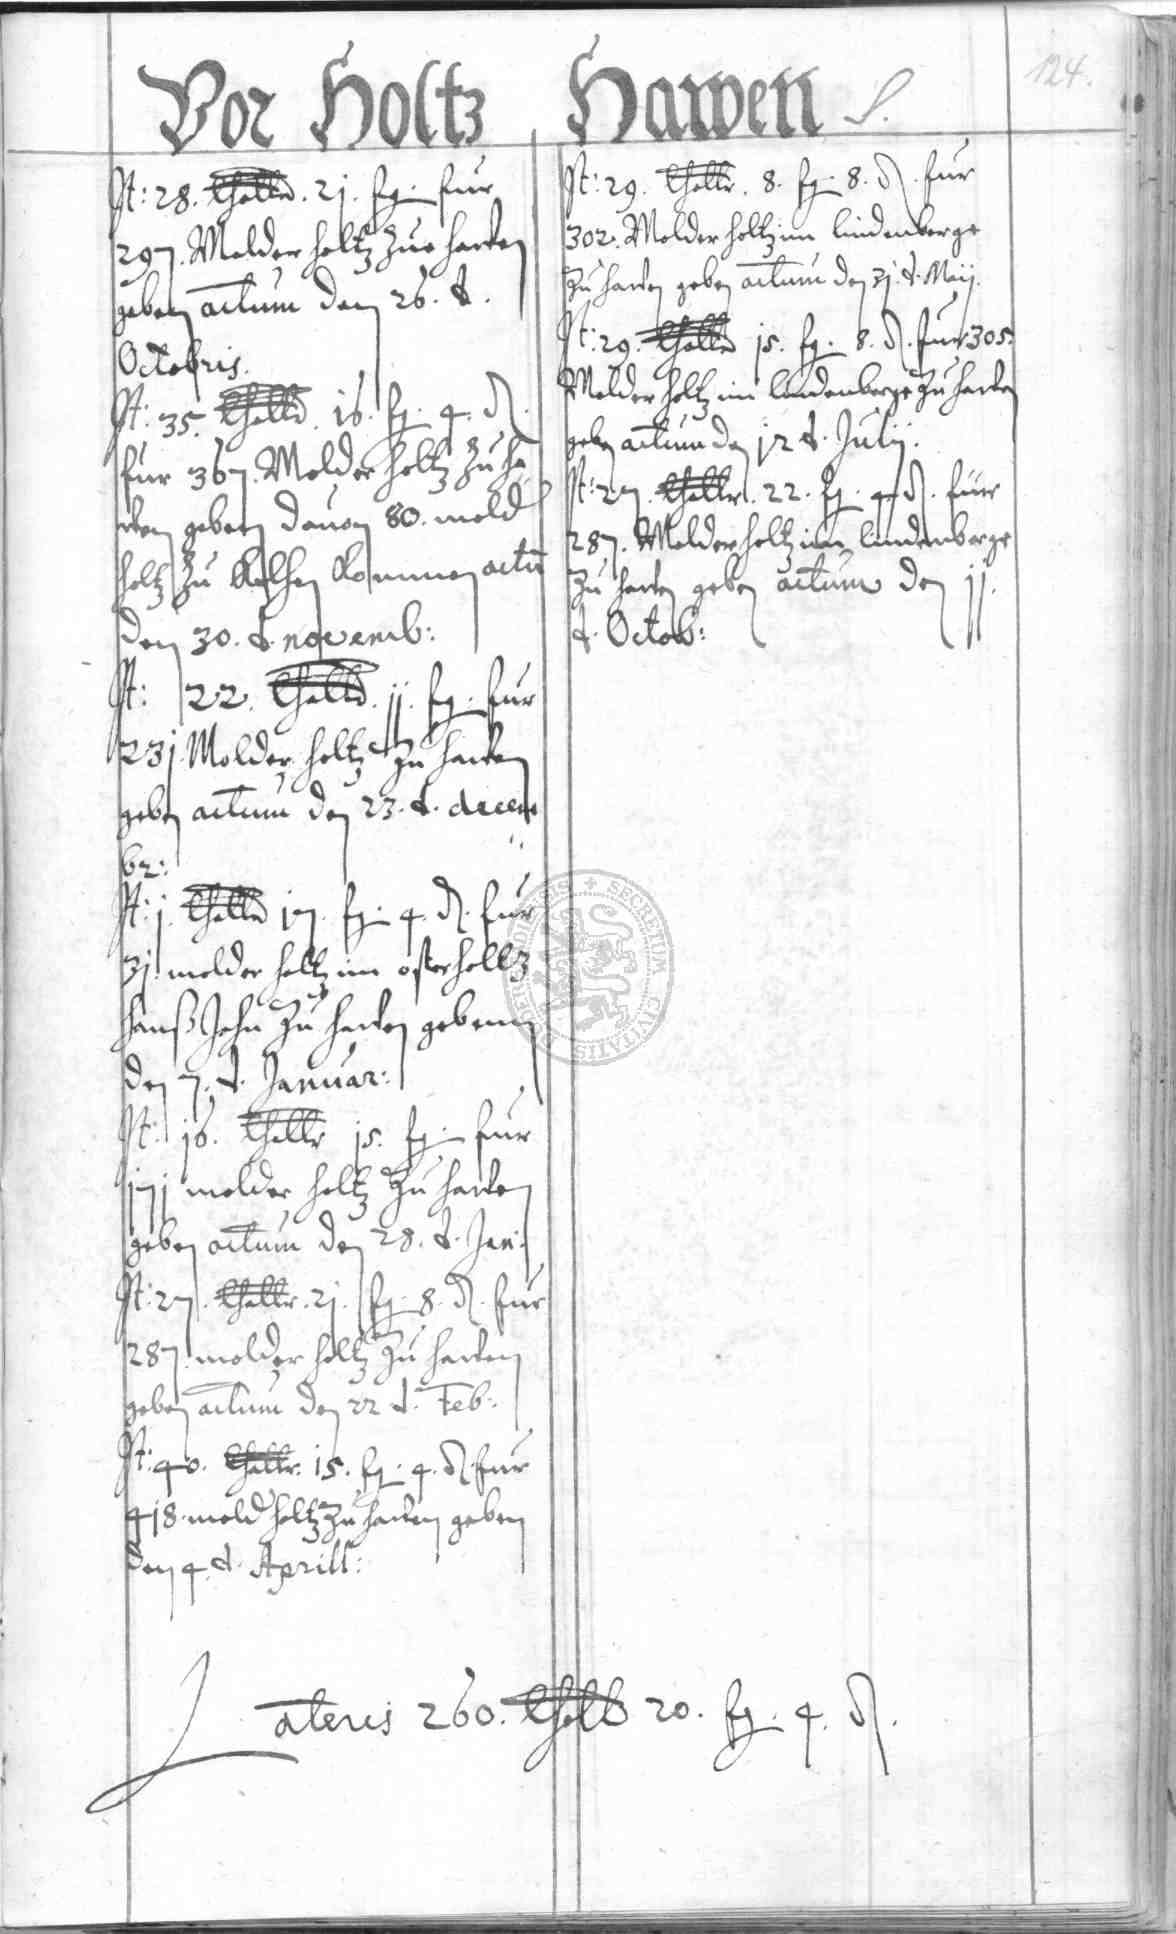 124.
Vor Holtz Hawen
It: 28. thaller. 21. fg. fur
297. Molder holtz zue hawen
geben actum den 26. d.
Octobris.
It: 35. thaller. 16. fg. 4. d.
fur 367. Molder holtz zu ha
wen geben dauon 80. mold
holtz zu kommen actu
den 30. d. novemb:
It: 22. thaller. jj. fg. fur
23j Molder holtz zu hawen
geben actum den 23. d. decem
br:
It: j. thaller 17. fg. 4. d. fur
3j. molder holtz im osterholtz
hanß Jahn zu hawen gebenn
den 7. d. Januar:
It: j6. thaller j5. fg. fur
j7j molder holtz zu hawen
geben actum den 28. d. Jan:
It: 27. thaller. 2j. fg. 8. d. fur
287. molder holtz zu hawen
geben actum den 22 d. Feb:
It: 40. thaller. 15. fg. 4. d. fur
4j8. mold holtz zu hawen geben
den 4. d. Aprill:
It: 29. thaller. 8. fg. 8. d. fur
302. Molder holtz im lindenberge
zu hawen geben actum den 3j. d. Maij.
It: 29. thaller j5. fg. 8. d. fur 305.
Molder holtz im lindenberge zu hawen
geben actum den j2 d. Julij.
It: 27. thaller. 22. fg. 4. d. fur
287. Molder holtz im lindenberge
zu hawen geben actum den jj.
d. Octob:
SECRETUM CIVITATIS
Lateris 260. thall 20. fg. 4. d.